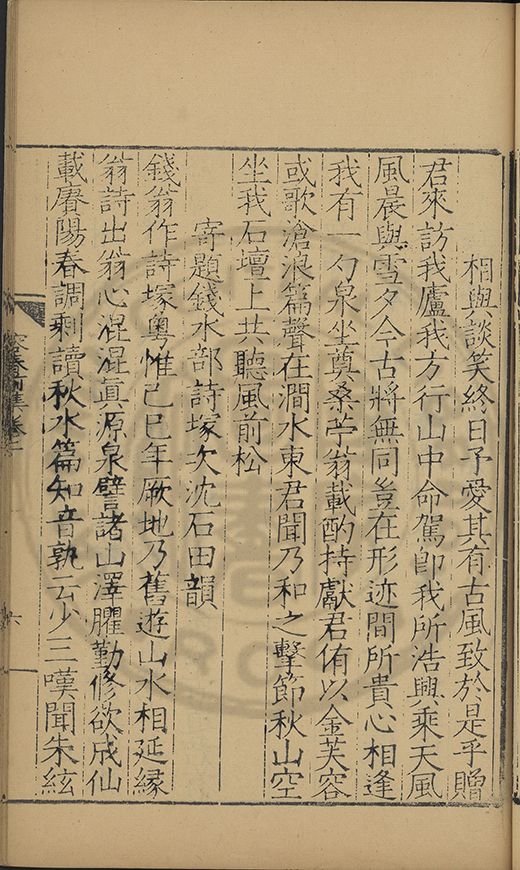 相與談笑終日予愛其有古風致於是乎贈
君來訪我廬我方行山中命駕卽我所浩興乘天風
風晨與雪夕今古將無同豈在形迹間所貴心相逢
我有一勺泉坐奠桑苧翁載酌持獻君侑以金芙容
或歌滄浪篇聲在澗水東君聞乃和之擊節秋山空
坐我石壇上共聽風前松
寄題錢水部詩塚次沈石田韻
錢翁作詩塚粵惟己巳年厥地乃舊遊山水相延緣
翁詩出翁心混混眞源泉譬諸山澤臞勤修欲成仙
載賡陽春調剩讀秋水篇知音孰云少三嘆聞朱絃
六